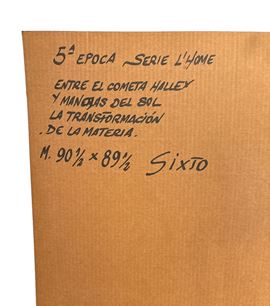 5ª EPOCA SERIE L'HOME
ENTRE EL COMETA HALLEY
Y MANCHAS DEL SOL
LA TRANSFORMACIÓN
.DE LA MATERIA.
M. 90 1/2 x 89 1/2 SixTO